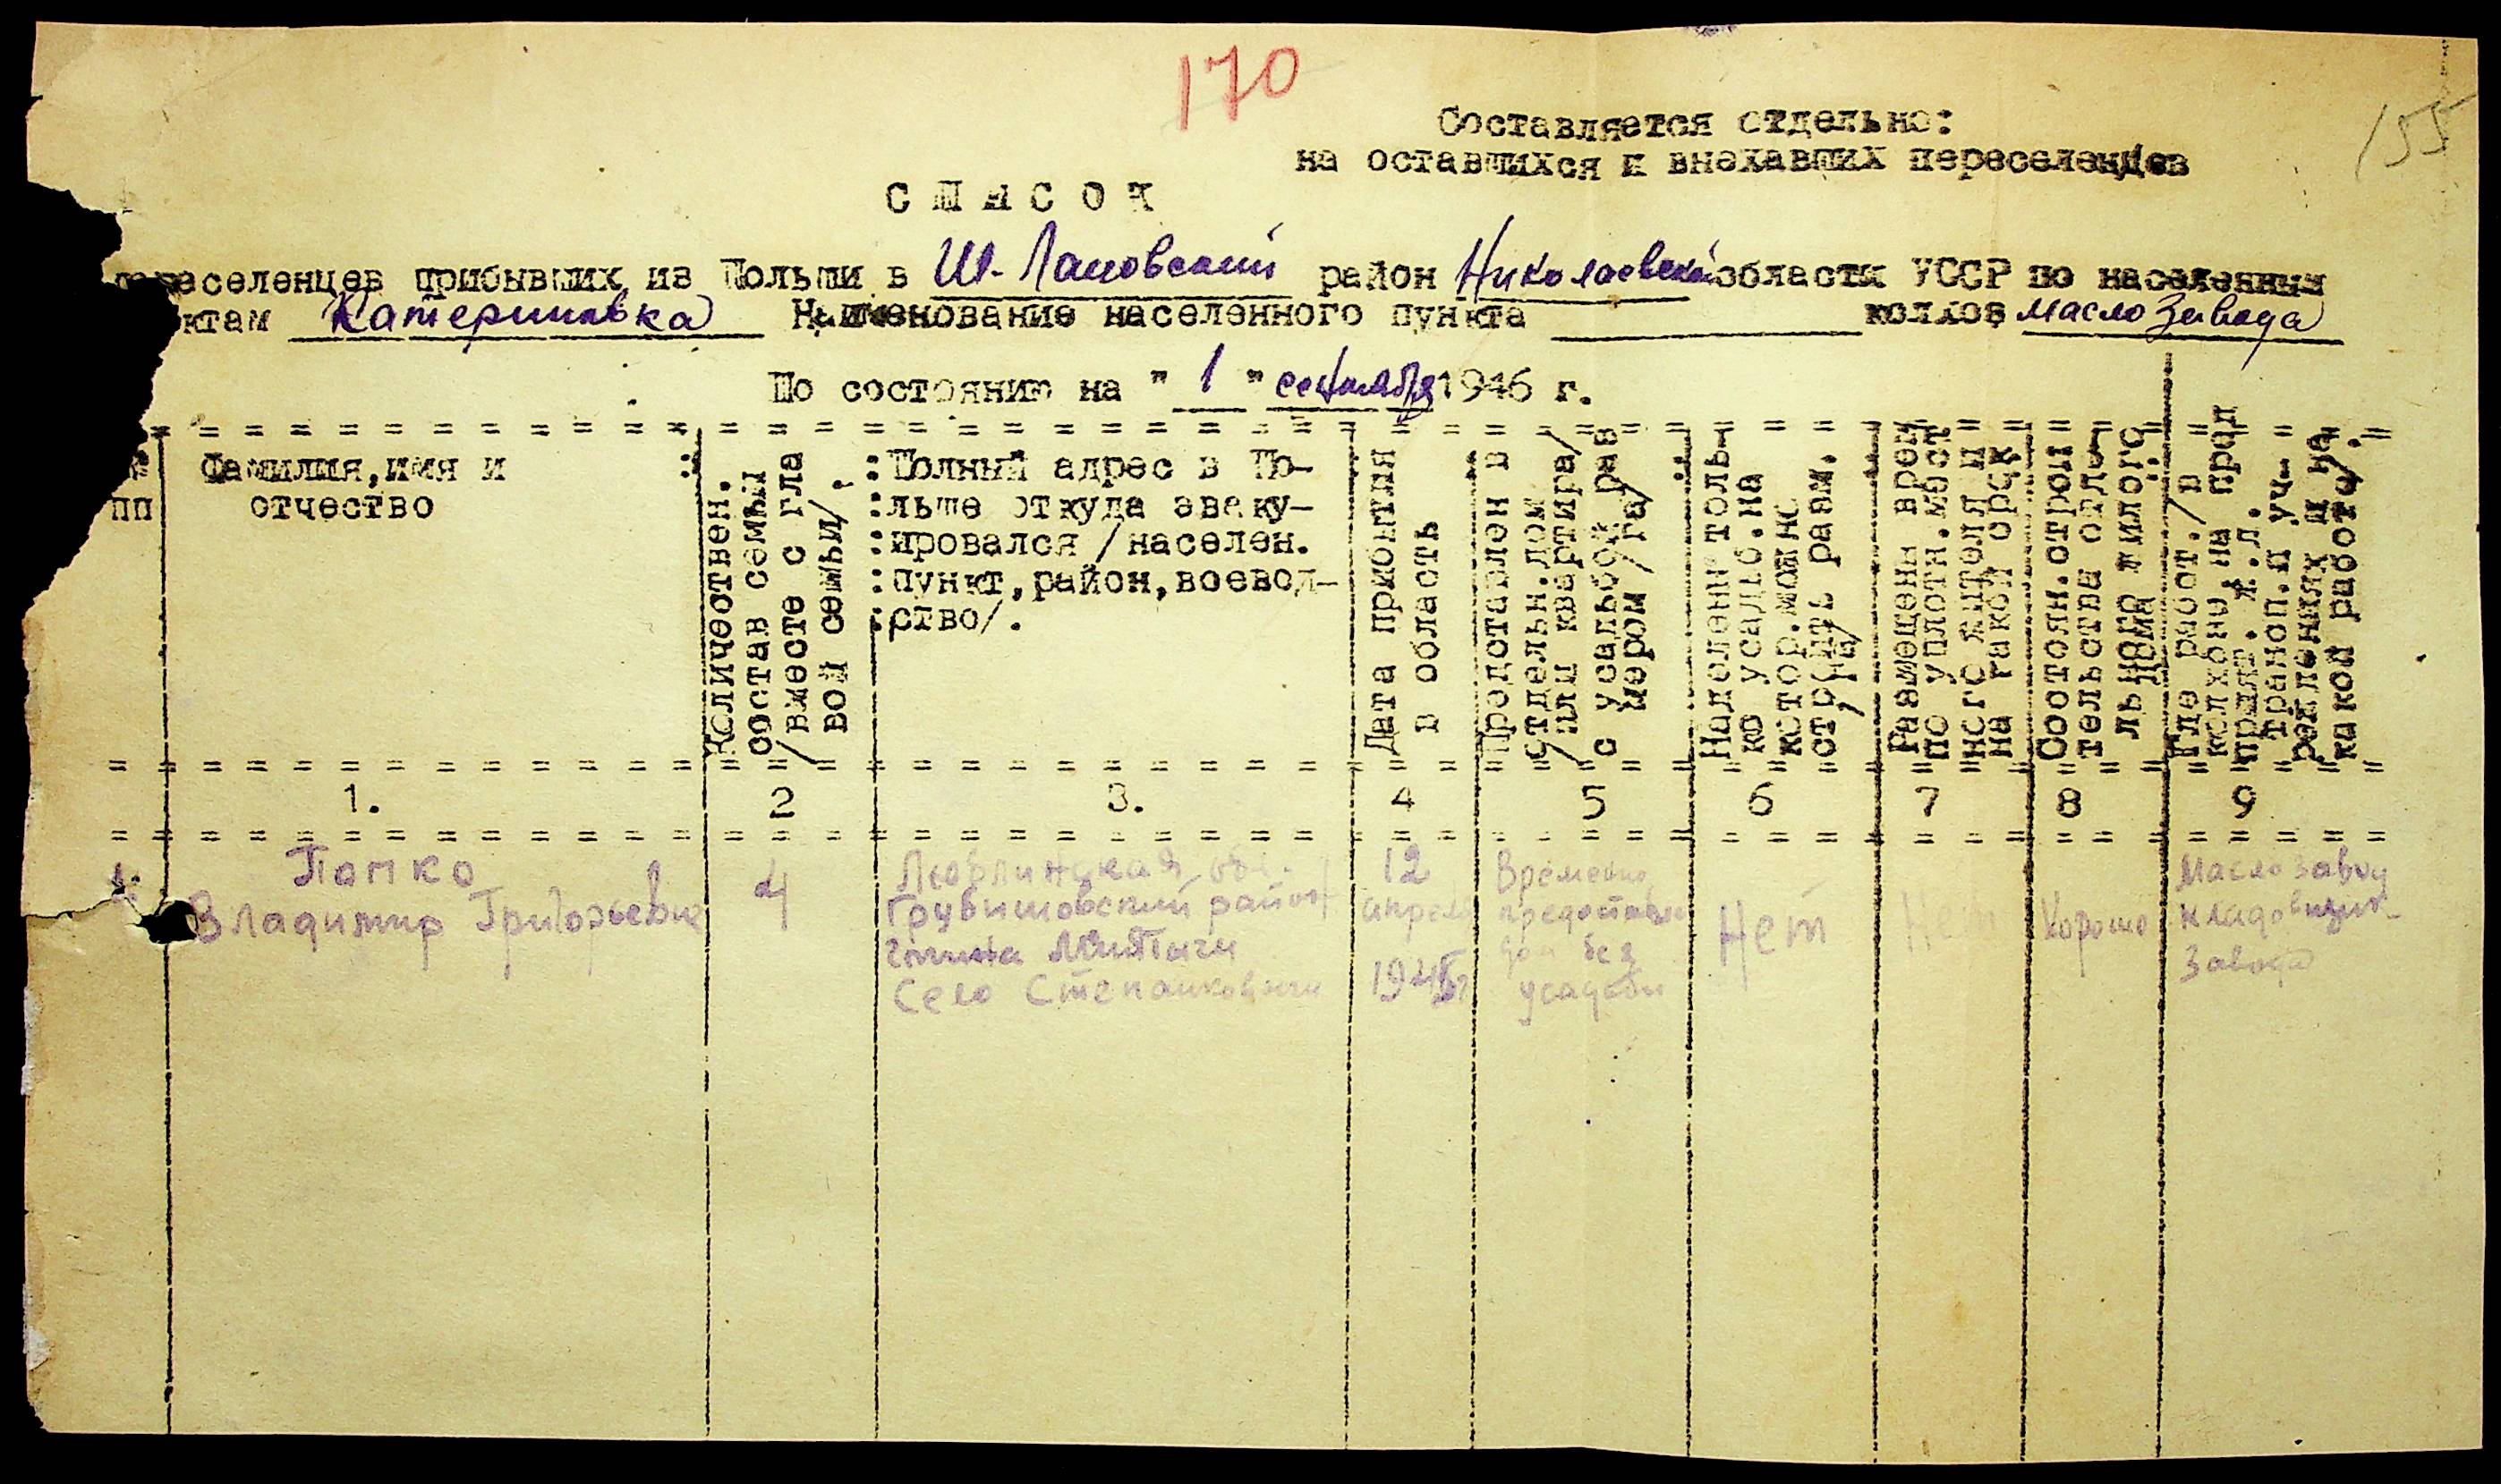 170
155
Составляется отдельно:
на оставшихся и внехавших переселенцев
СПИСОК
переселенцев прибывших из Польши в Ш-Лановский район Николаевской области УССР по населенным
ктам Катериновка Наименование населенного пункта колхоз масло завода
По состоянию на "1" сентября 1946 г.
№ пп
Фамилия, имя и
отчество
Количествен.
состав семьи
/вместе с гла
вой семьи/.
Полный адрес в По-
льше откуда эваку-
ировался /населен.
пункт, район, воевод-
ство/.
Дата прибытия
в область
Представлен в
отдельн.дом
/или квартира/
с усадьбой раз
мером /га/
Наделены толь-
ко усадьб. на
котор. можно
строить разм.
/га/
Размещены врем
по уплотн. мест
ного жителя и
на какой срок
Состоян. строи
тельства отде-
льного жилого
дома
Где работ./в
колхозе, на пред
прият. ж.д.
трансп. и уч-
реждениях и на
какой работе/.
1. 2 3. 4 5 6 7 8 9
1.
Попко
Владимир Григорьевич
4
Люблинская обл.
Грубишовский район
гмина Митычи
Село Степанковичи
12
апреля
1945г
Временно
предоставлен
дом без
усадьби
Нет
Нет
Хорошо
Масло завод
кладовщик
завода